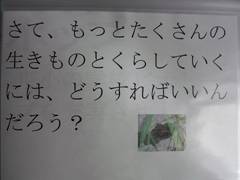 さて、もっとたくさんの
生きものとくらしていく
には、どうすればいいん
だろう？